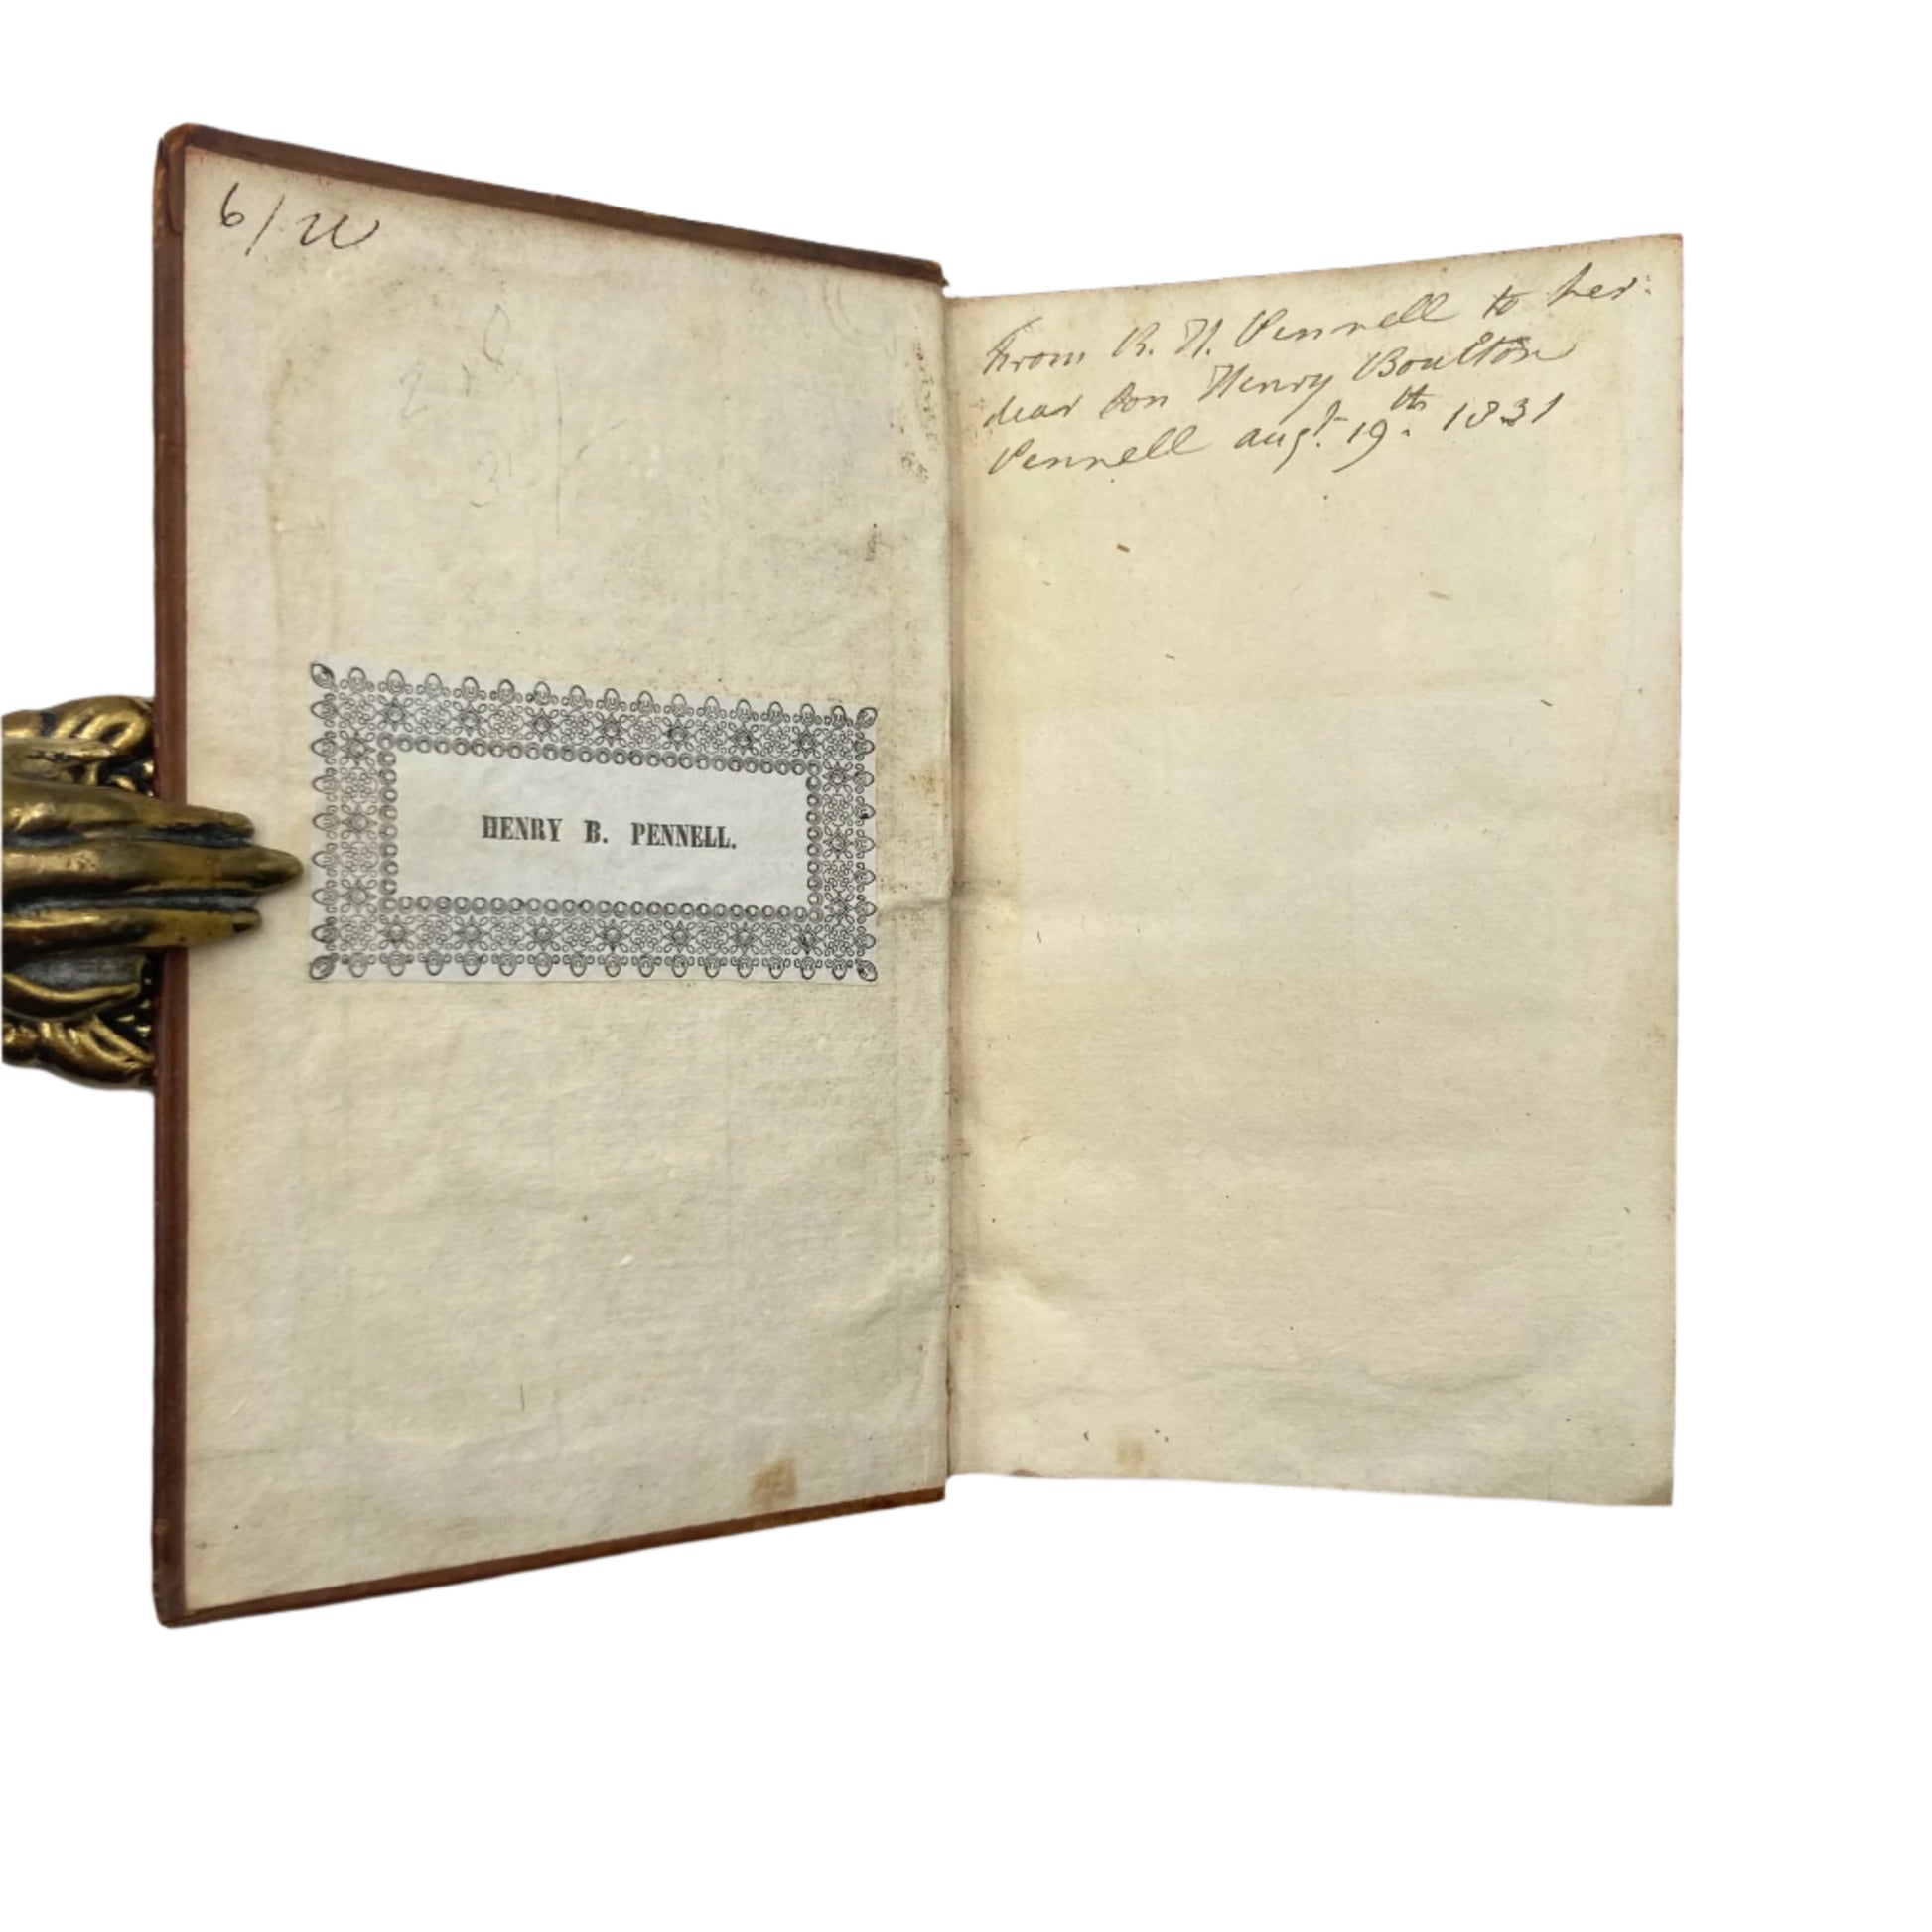 6/
HENRY B. PENNELL.
From R. H. Pennell to her
dear Son Henry Boulton
Pennell augt. 19th. 1831